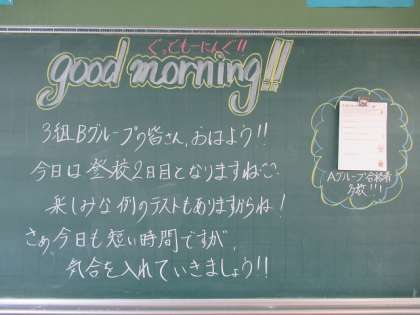 ぐっどもーにんぐ!!
good morning!!
3組Bグループの皆さん、おはよう!!
今日は登校2日目となりますね
楽しみな例のテストもありますからね!
さぁ今日も短い時間ですが、
気合を入れていきましょう!!
Aグループ合格者
多数!!!